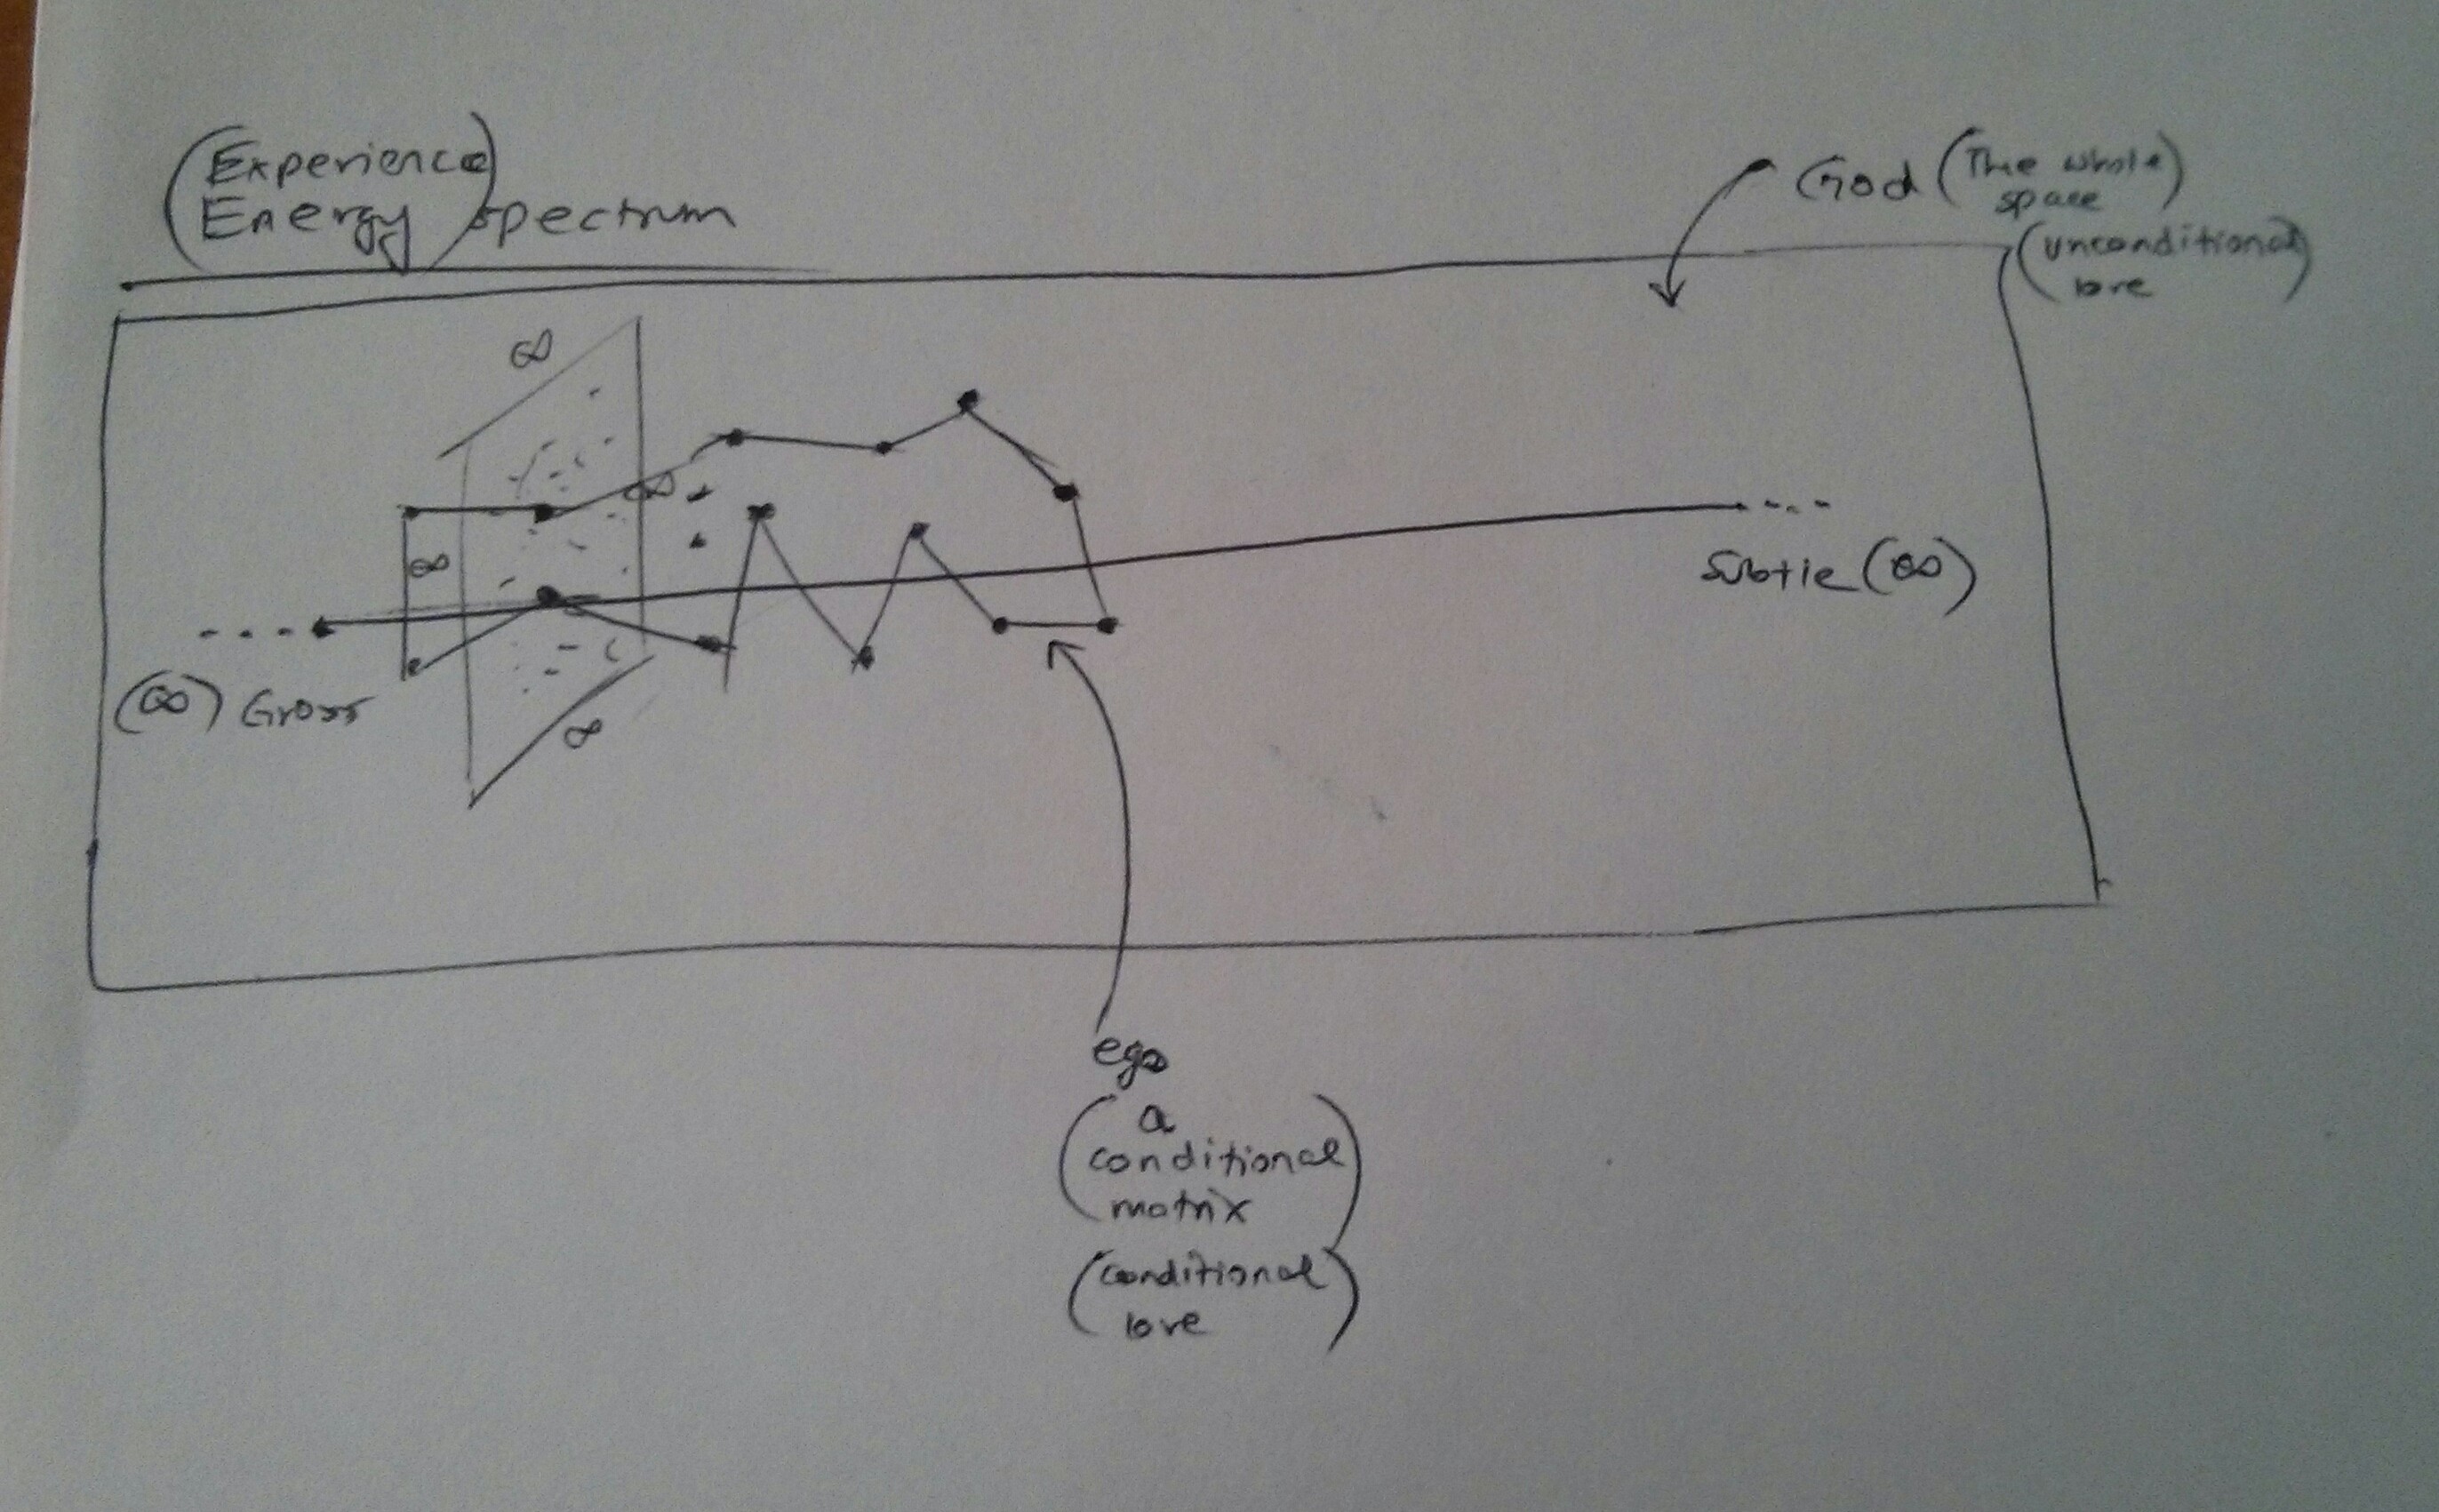 (Experience
Energy) spectrum
God (The whole
space)
(unconditional
love)
∞
∞
∞
subtle (∞)
(∞) Gross
∞
ego
(a
conditional
matrix
(conditional
love)